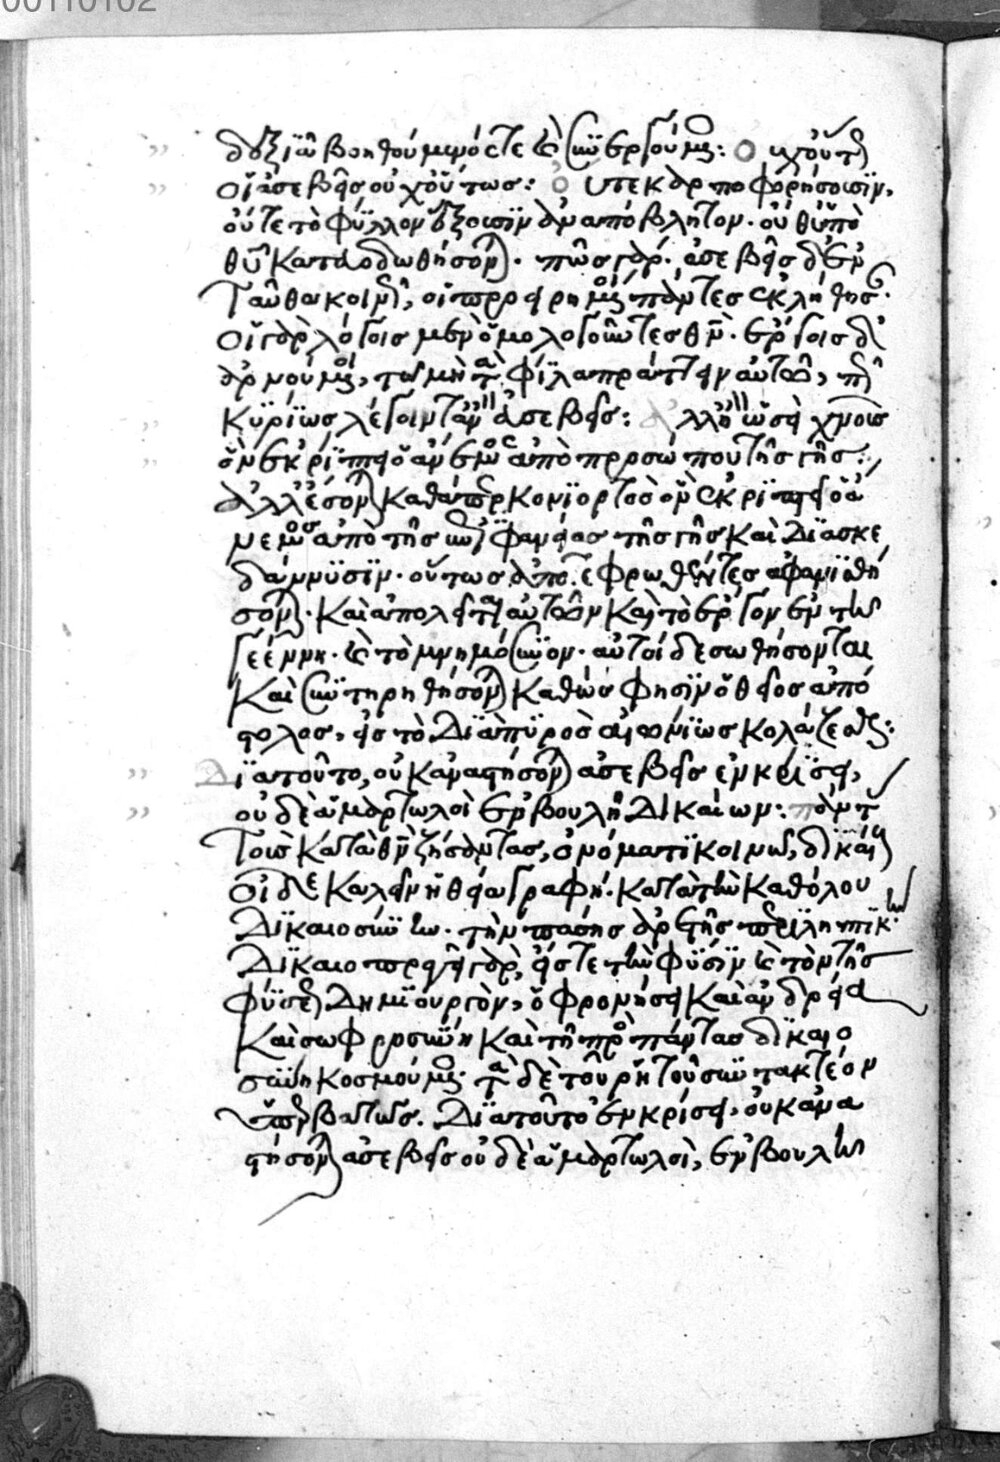 δεξιῶν βοηθούμενός τε καὶ συνεργούμενος: οὐχ οὕτως
οἱ ἀσεβεῖς οὐχ οὕτως: οὔτε καρποφορήσουσιν,
οὔτε τὸ φύλλον ἕξουσιν ἀναπόβλητον· οὐθ' ὑπὸ
θεοῦ κατευοδωθήσονται· πῶς γάρ· ἀσεβεῖς δὲ ἐν
ταῦθα κοινῶς, οἱ προειρημένοι πάντες ἐκλήθησαν·
οἱ γὰρ λόγοις μὲν ὁμολογοῦντες θεόν· ἔργοις δὲ
ἀρνούμενοι, τῷ μὴ τὰ φίλα πράττειν αὐτῷ,
κυρίως λέγοιντ' ἂν ἀσεβεῖς: ἀλλ' ἢ ὡσεὶ χνοῦς
ὃν ἐκρίπτει ὁ ἄνεμος ἀπὸ προσώπου τῆς γῆς:
ἀλλ' ἔσονται καθάπερ κονιορτὸς ὃν ἐκρίπτει ὁ ἄ
νεμος ἀπὸ τῆς ἐπιφανείας τῆς γῆς καὶ διασκε
δάννυσιν· οὕτως ἀποτεφρωθέντες ἀφανισθή
σονται· καὶ ἀπολεῖται αὐτῶν καὶ τὸ ἔργον ἐν τῇ
γεέννῃ· καὶ τὸ μνημόσυνον· αὐτοὶ δὲ σωθήσονται
καὶ συντηρηθήσονται καθώς φησιν ὁ θεῖος ἀπό
στολος, εἰς τὸ διαπύρως αἰωνίως κολάζεσθαι:
διὰ τοῦτο, οὐκ ἀναστήσονται ἀσεβεῖς ἐν κρίσει,
οὐδὲ ἁμαρτωλοὶ ἐν βουλῇ δικαίων: πάντας
τοὺς κατὰ θεὸν ζήσαντας, ὀνόματι κοινῷ, δικαίους
οἶδε καλεῖν ἡ θεία γραφή· κατὰ τὴν καθόλου
δικαιοσύνην· τὴν πάσης ἀρετῆς περιληπτικήν·
δικαιοπραγεῖ γὰρ, εἴς τε τὴν φύσιν καὶ τὸν τῆς
φύσεως δημιουργὸν, ὁ φρονήσει καὶ ἀνδρείᾳ
καὶ σωφροσύνῃ καὶ τῇ πρὸς πάντας δικαιο
σύνῃ κοσμούμενος· τὰ δὲ τοῦ ῥητοῦ συντακτέον
ὑπερβατῶς. διὰ τοῦτο ἐν κρίσει, οὐκ ἀνα
στήσονται ἀσεβεῖς οὐδὲ ἁμαρτωλοὶ, ἐν βουλῇ